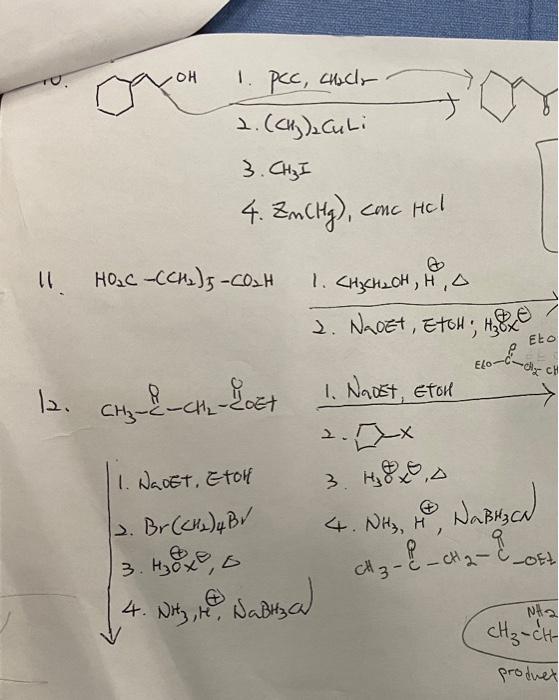 10.
OH
1. PCC, CH2Cl2
2. (CH3)2CuLi
3. CH3I
4. Zn(Hg), conc HCl
11. HO2C-(CH2)5-CO2H
1. CH3CH2OH, H⊕, Δ
2. NaOEt, EtOH; H3O⊕X⊖
EtO
O
EtO-C-CH2-CH
12. CH3-C-CH2-COEt
O O
1. NaOEt, EtOH
2. -X
3. H3O⊕X⊖, Δ
4. NH3, H⊕, NaBH3CN
O O
CH3-C-CH2-C-OEt
1. NaOEt, EtOH
2. Br(CH2)4Br
3. H3O⊕X⊖, Δ
4. NH3, H⊕, NaBH3CN
NH2
CH3-CH-
product